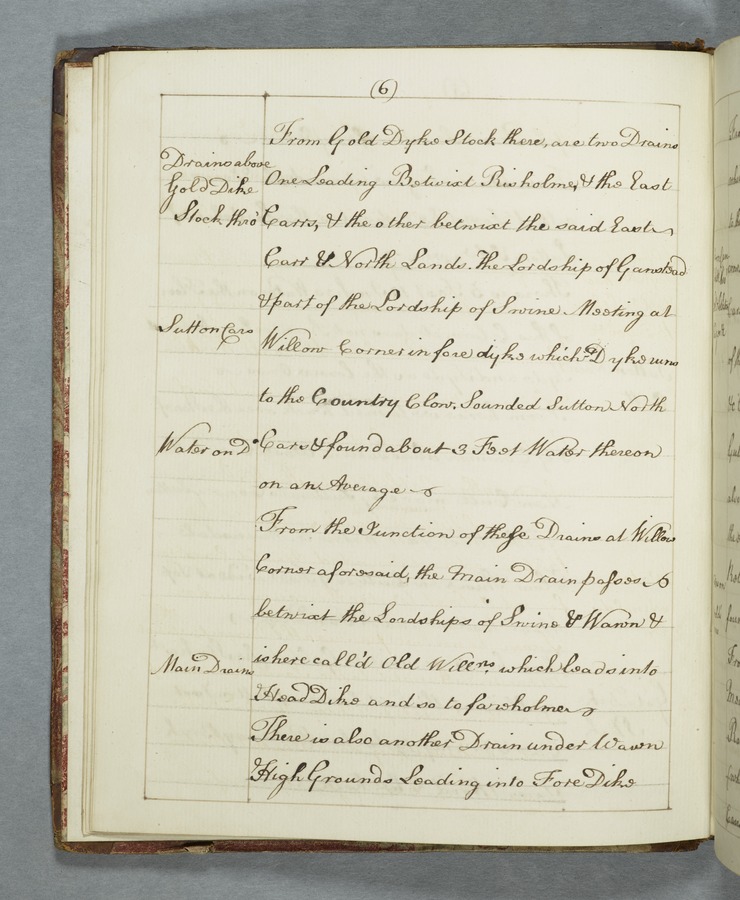 (6)
From Gold Dyke Stock there, are two Drains
Drains above
Gold Dike
Stock thro'
One Leading Betwixt Risholme, & the East
Carrs, & the other betwixt the said East
Carr & North Lands. the Lordship of Ganstead
& part of the Lordship of Swine Meeting at
Sutton Cars
Willow Corner in fore dyke which Dyke runs
to the Country Clow. Sounded Sutton North
Water on Do
Cars & found about 3 Feet Water thereon
on an Average
From the Junction of these Drains at Willow
Corner aforesaid, the Main Drain passes
betwixt the Lordships of Swine & Wawn &
Main Drains
is here call'd Old Willns. which leads into
Head Dike and so to fareholme
There is also another Drain under Wawn
High Grounds Leading into Fore Dike